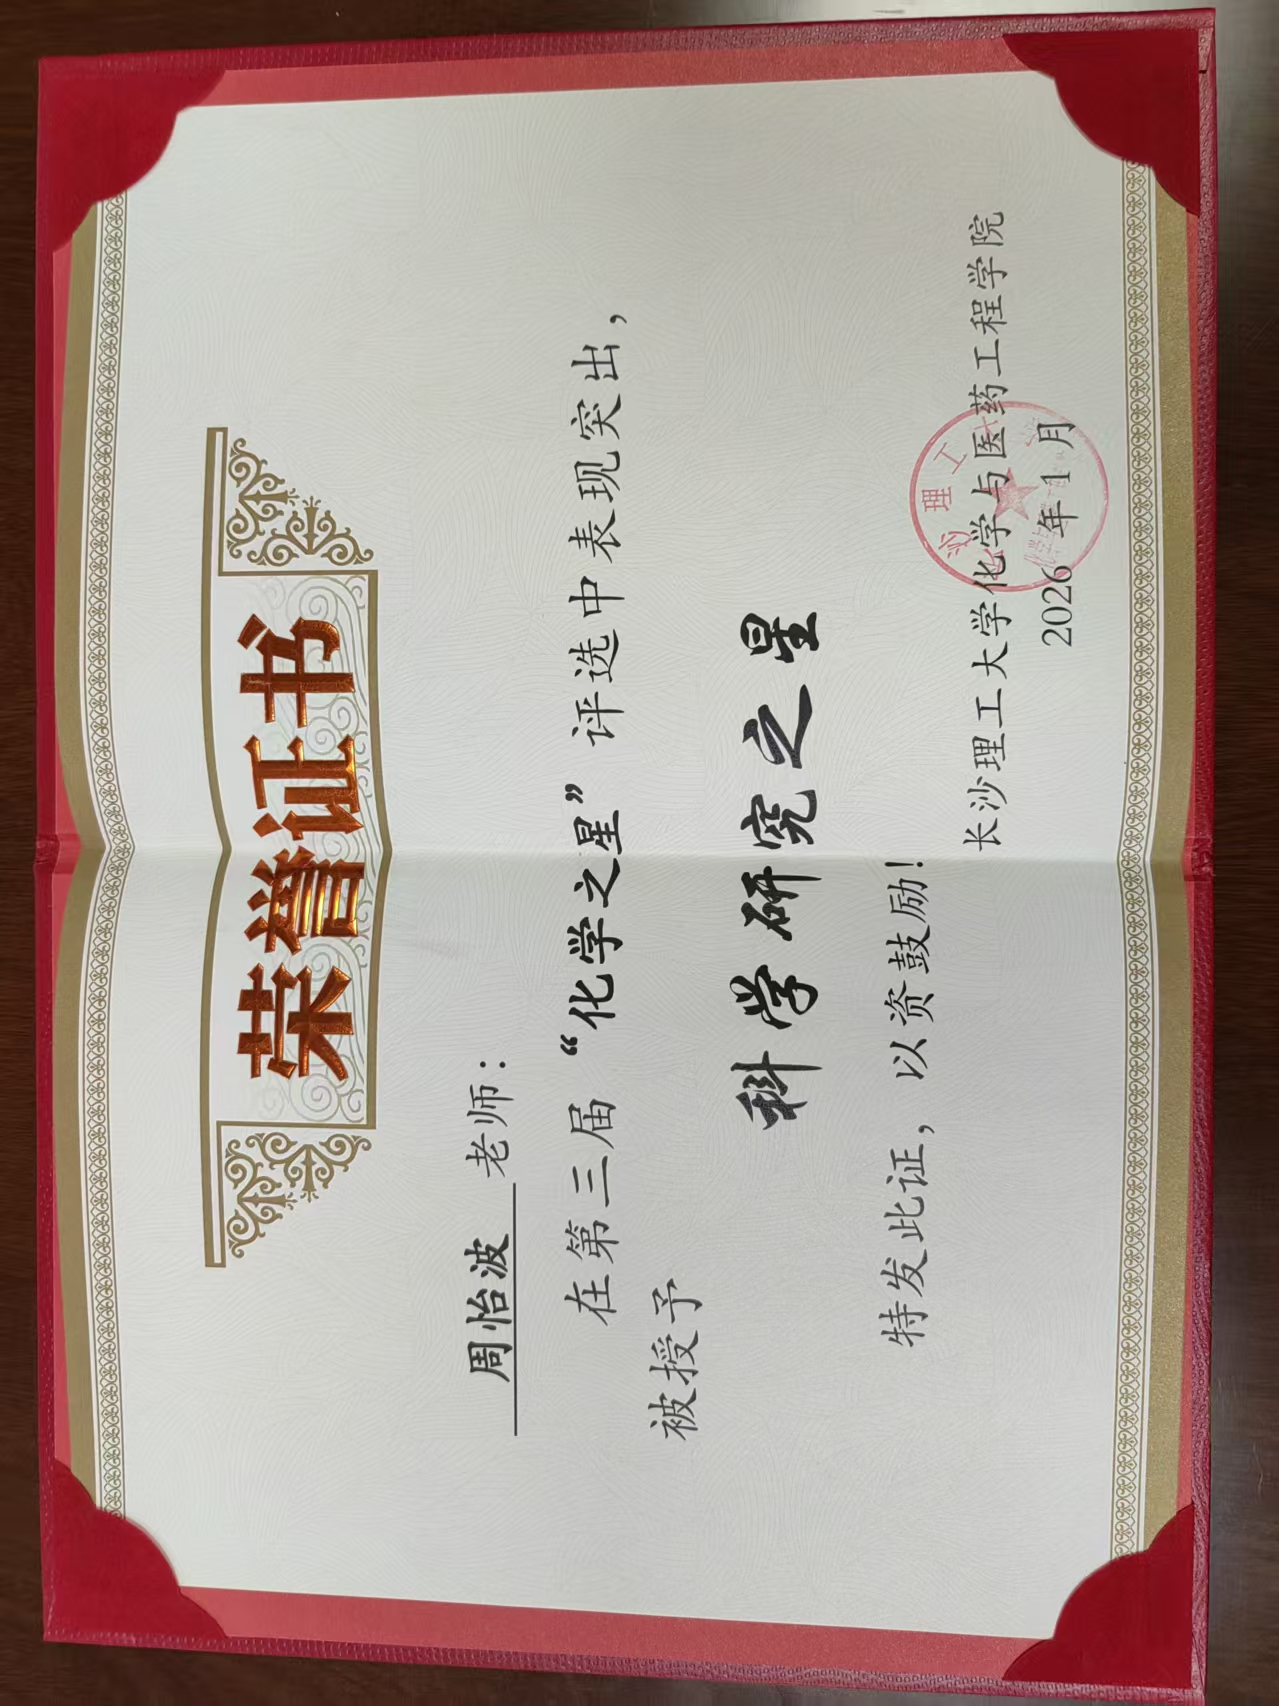 荣誉证书
周怡波 老师：
在第三届“化学之星”评选中表现突出，
被授予
科学研究之星
特发此证，以资鼓励！
长沙理工大学化学与医药工程学院
2026年1月
沙理工